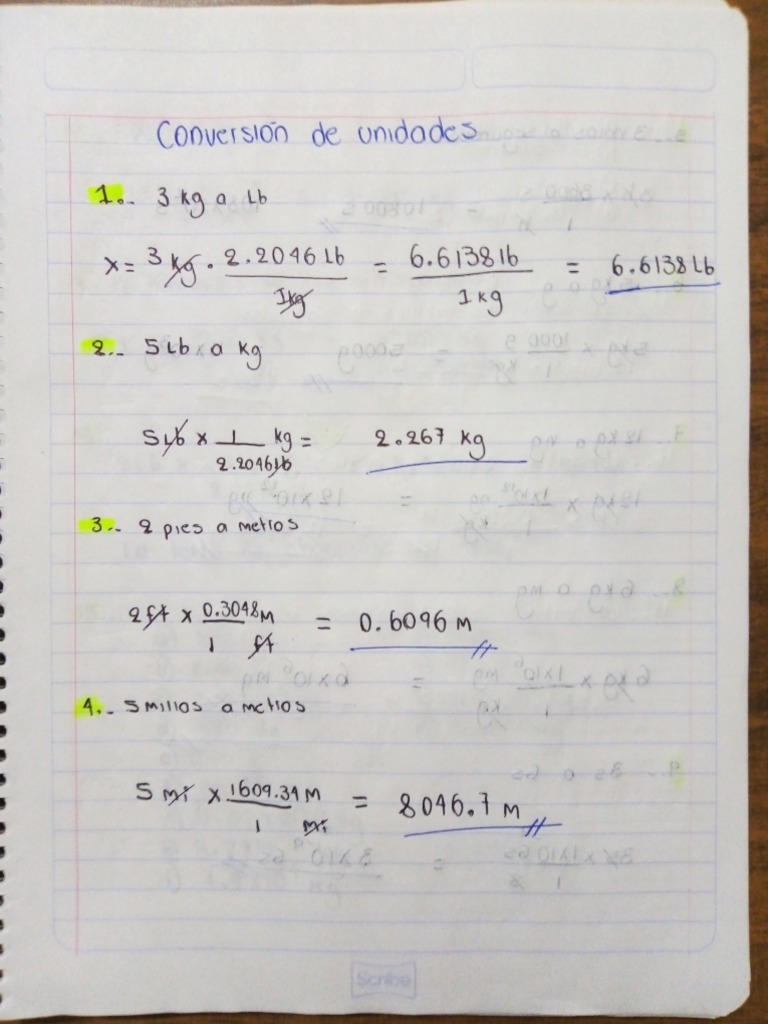 Conversión de unidades
1.- 3 kg a Lb
x = 3 kg · 2.2046 Lb / 1kg = 6.6138 lb / 1 kg = 6.6138 Lb
2.- 5 Lb a kg
5 Lb x 1 / 2.2046 lb kg = 2.267 kg
3.- 2 pies a metros
2 ft x 0.3048 M / 1 ft = 0.6096 M
4.- 5 millas a metros
5 mi x 1609.34 M / 1 mi = 8046.7 M
Scribe